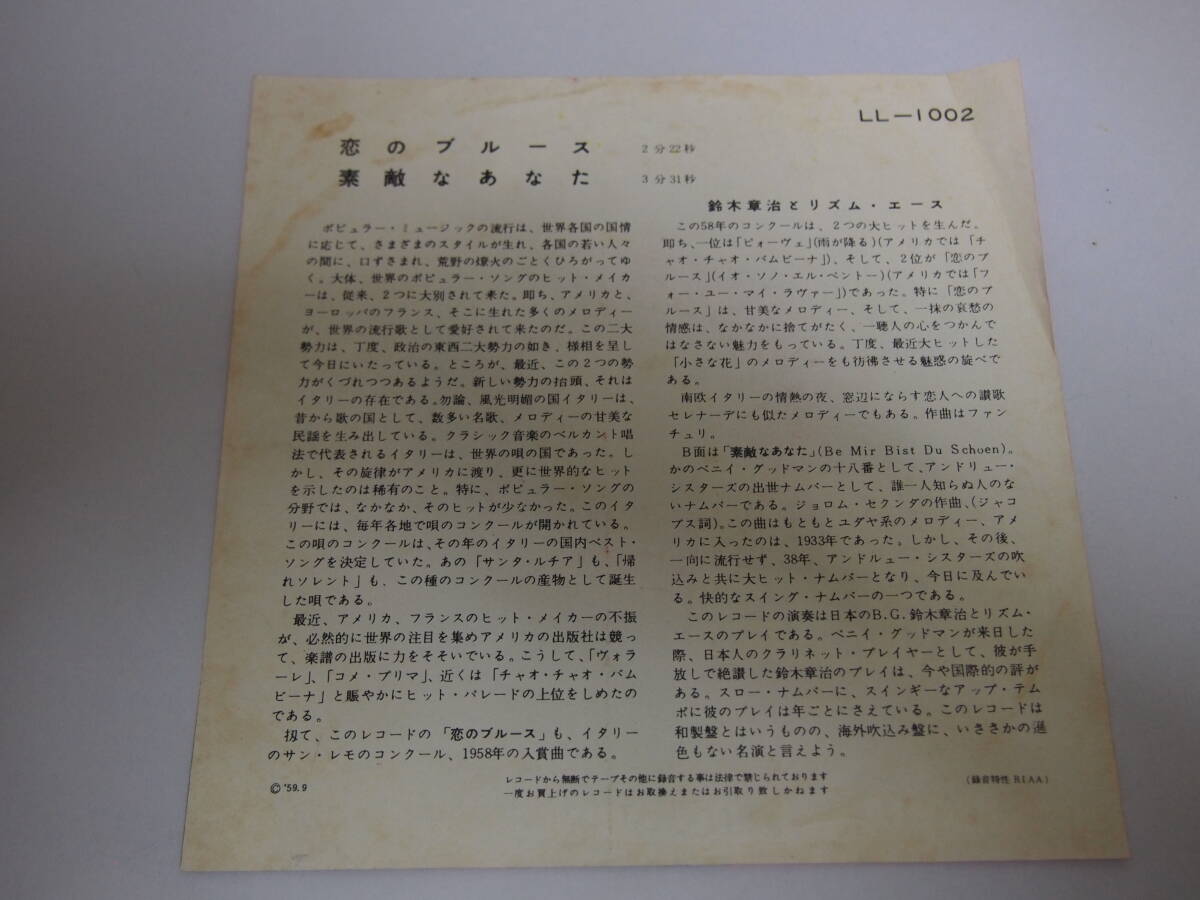 LL-1002
恋のブルース 2分22秒
素敵なあなた 3分31秒
鈴木章治とリズム・エース
ポピュラー・ミュージックの流行は、世界各国の国情
に応じて、さまざまのスタイルが生れ、各国の若い人々
の間に、口ずさまれ、荒野の燎火のごとくひろがってゆ
く。大体、世界のポピュラー・ソングのヒット・メイカ
ーは、従来、2つに大別されて来た。即ち、アメリカと、
ヨーロッパのフランス、そこに生れた多くのメロディー
が、世界の流行歌として愛好されて来たのだ。この二大
勢力は、丁度、政治の東西二大勢力の如き、様相を呈し
て今日にいたっている。ところが、最近、この2つの勢
力がくづれつつあるようだ。新しい勢力の抬頭、それは
イタリーの存在である。勿論、風光明媚の国イタリーは、
昔から歌の国として、数多い名歌、メロディーの甘美な
民謡を生み出している。クラシック音楽のベルカント唱
法で代表されるイタリーは、世界の唄の国であった。し
かし、その旋律がアメリカに渡り、更に世界的なヒット
を示したのは稀有のこと。特に、ポピュラー・ソングの
分野では、なかなか、そのヒットが少なかった。このイタ
リーには、毎年各地で唄のコンクールが開かれている。
この唄のコンクールは、その年のイタリーの国内ベスト・
ソングを決定していた。あの「サンタ・ルチア」も、「帰
れソレント」も、この種のコンクールの産物として誕生
した唄である。
最近、アメリカ、フランスのヒット・メイカーの不振
が、必然的に世界の注目を集めアメリカの出版社は競っ
て、楽譜の出版に力をそそいでいる。こうして、「ヴォラ
ーレ」、「コメ・プリマ」、近くは「チャオ・チャオ・バム
ビーナ」と賑やかにヒット・パレードの上位をしめたの
である。
扨て、このレコードの「恋のブルース」も、イタリー
のサン・レモのコンクール、1958年の入賞曲である。
この58年のコンクールは、2つの大ヒットを生んだ。
即ち、一位は「ピォーヴェ」(雨が降る)(アメリカでは「チ
ャオ・チャオ・バムビーナ」)、そして、2位が「恋のブ
ルース」(イオ・ソノ・エル・ベントー)(アメリカでは「フ
ォー・ユー・マイ・ラヴァー」)であった。特に「恋のブ
ルース」は、甘美なメロディー、そして、一抹の哀愁の
情感は、なかなかに捨てがたく、一聴人の心をつかんで
はなさない魅力をもっている。丁度、最近大ヒットした
「小さな花」のメロディーをも彷彿させる魅惑の旋べで
ある。
南欧イタリーの情熱の夜、窓辺にならす恋人への讃歌
セレナーデにも似たメロディーでもある。作曲はファン
チュリ。
B面は「素敵なあなた」(Be Mir Bist Du Schoen)。
かのベニイ・グッドマンの十八番として、アンドリュー・
シスターズの出世ナムバーとして、誰一人知らぬ人のな
いナムバーである。ジョロム・セクンダの作曲、(ジャコ
ブス詞)。この曲はもともとユダヤ系のメロディー、アメ
リカに入ったのは、1933年であった。しかし、その後、
一向に流行せず、38年、アンドルュー・シスターズの吹
込みと共に大ヒット・ナムバーとなり、今日に及んでい
る。快的なスイング・ナムバーの一つである。
このレコードの演奏は日本のB.G.鈴木章治とリズム・
エースのプレイである。ベニイ・グッドマンが来日した
際、日本人のクラリネット・プレイヤーとして、彼が手
放しで絶讃した鈴木章治のプレイは、今や国際的の評が
ある。スロー・ナムバーに、スインギーなアップ・テム
ポに彼のプレイは年ごとにさえている。このレコードは
和製盤とはいうものの、海外吹込み盤に、いささかの遜
色もない名演と言えよう。
レコードから無断でテープその他に録音する事は法律で禁じられております
一度お買上げのレコードはお取換えまたはお引取り致しかねます
(録音特性 RIAA)
©'59.9